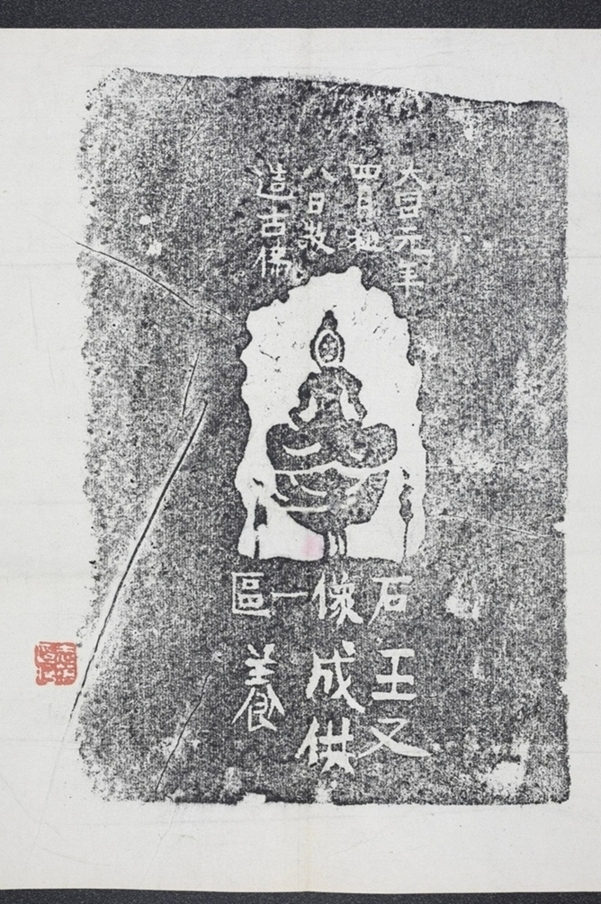 大元年
四月初
八日敬
造古佛
石像一區
王又
成供
養